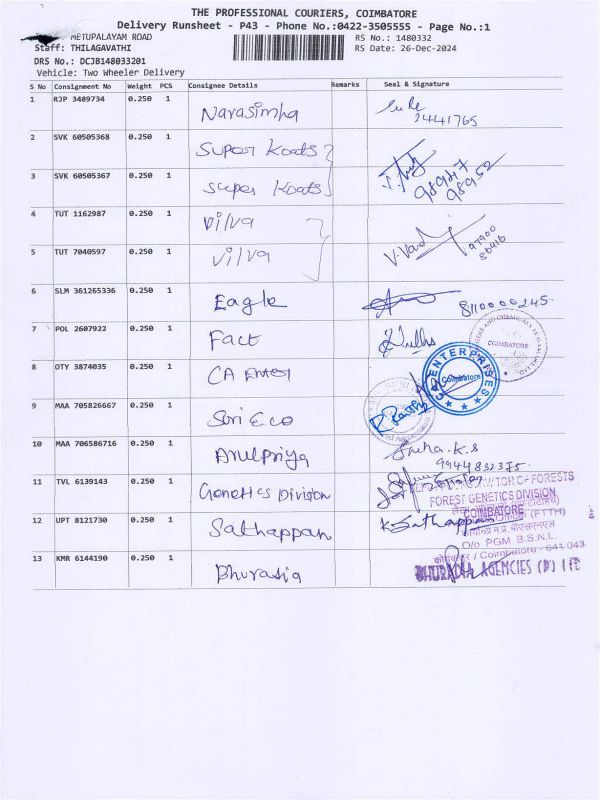 THE PROFESSIONAL COURIERS, COIMBATORE
Delivery Runsheet - P43 - Phone No.:0422-3505555 - Page No.:1
METUPALAYAM ROAD
RS No.: 1480332
Staff: THILAGAVATHI
RS Date: 26-Dec-2024
DRS No.: DCJB148033201
Vehicle: Two Wheeler Delivery
S No Consignment No Weight PCS Consignee Details Remarks Seal & Signature
1 RJP 3489734 0.250 1 Narasimha
2441765
2 SVK 60505368 0.250 1 Super Koats
3 SVK 60505367 0.250 1 Super Koats
98947
98952
4 TUT 1162987 0.250 1 Vilva
5 TUT 7040597 0.250 1 Vilva
97900
6 SLM 361265336 0.250 1 Eagle 8110000245
7 POL 2607922 0.250 1 Fact
COIMBATORE
8 OTY 3874035 0.250 1 CA
CA ENTERPRISES
Coimbatore
9 MAA 705826667 0.250 1 Sri Eco
10 MAA 706586716 0.250 1 Arulpriya Sneha.K.S
9944832375
11 TVL 6139143 0.250 1 Genetics Division
OF FORESTS
FOREST GENETICS DIVISION
COIMBATORE
12 UPT 8121730 0.250 1 Sathappan K. Sathappan
(FTTH)
O/o PGM B.S.N.L.
/ Coimbatore - 641 043
13 KMR 6144190 0.250 1 Bhurasia
AGENCIES (P) Ltd